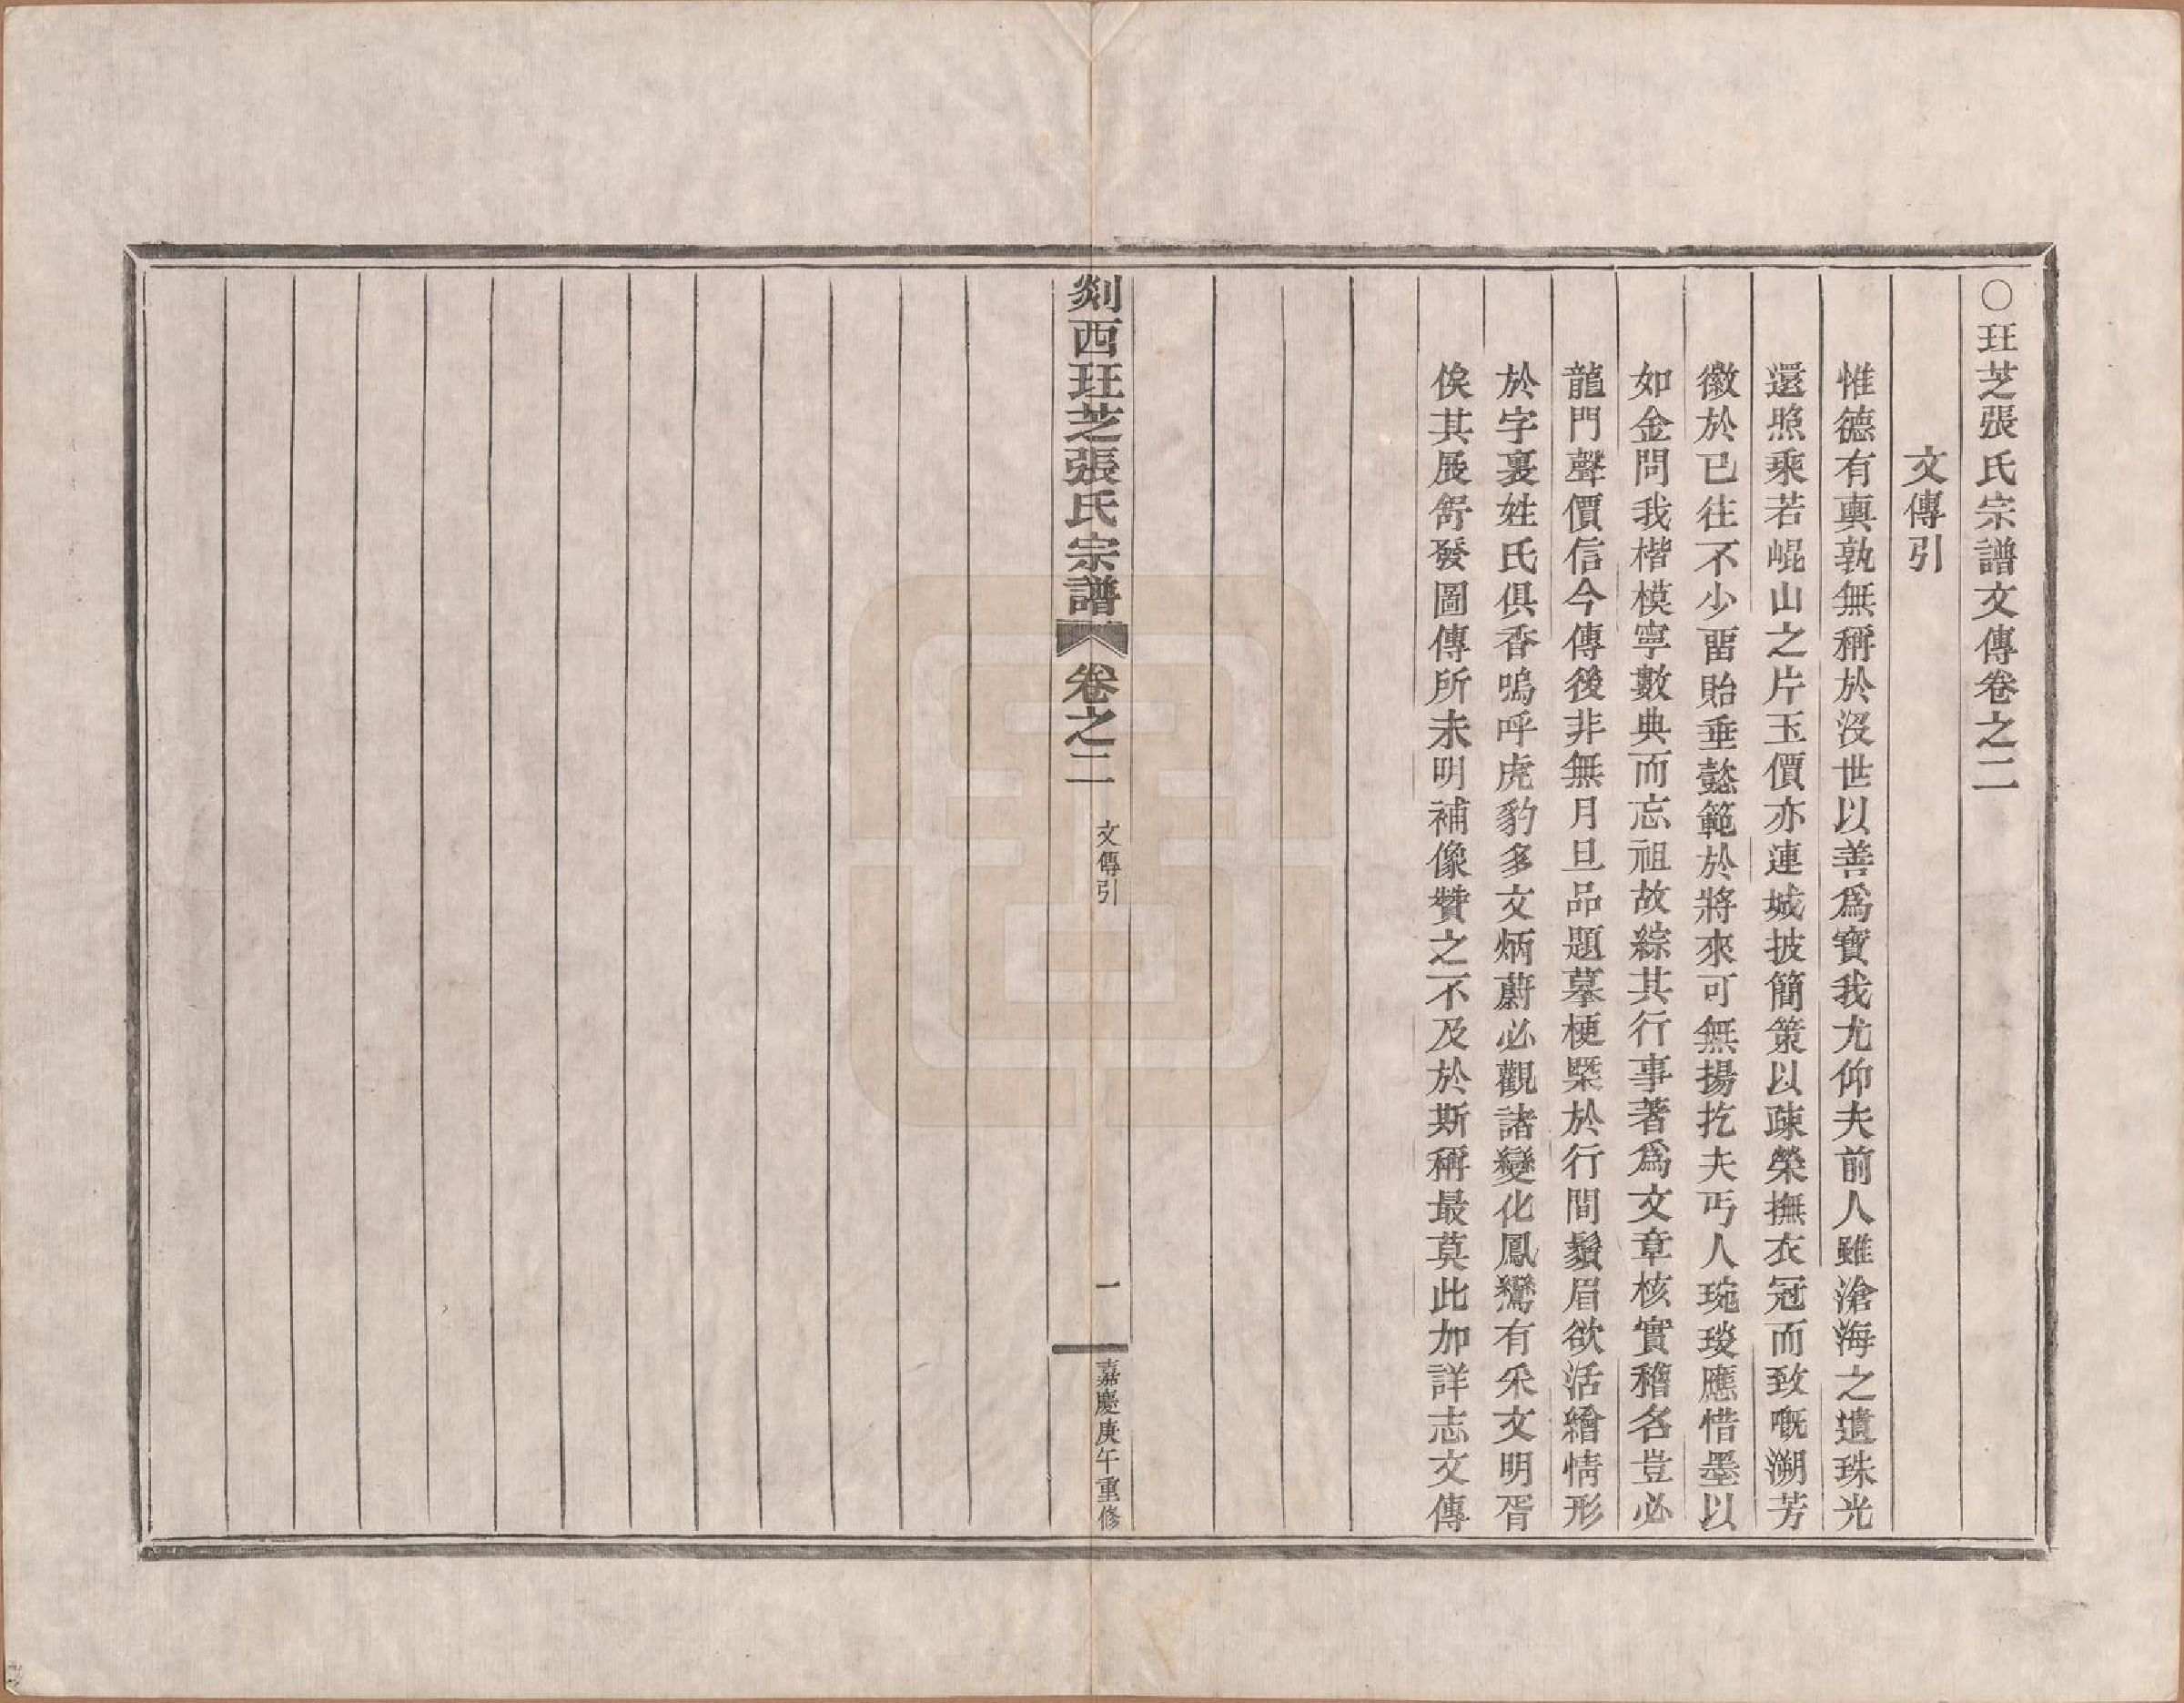 ○玨芝張氏宗譜文傳卷之二
文傳引
惟德有輿孰無稱於沒世以善爲寶我尤仰夫前人雖滄海之遺珠光
還照乘若崐山之片玉價亦連城披簡策以疎榮撫衣冠而致嘅溯芳
徽於已往不少畱貽垂懿範於將來可無揚扢夫丐人琬琰應惜墨以
如金問我楷模寧數典而忘祖故綜其行事著爲文章核實稽名豈必
龍門聲價信今傳後非無月旦品題摹梗槩於行間鬚眉欲活繪情形
於字裏姓氏俱香嗚呼虎豹多文炳蔚必觀諸變化鳳鸞有采文明胥
俟其展舒發圖傳所未明補像贊之不及於斯稱最莫此加詳志文傳
剡西玨芝張氏宗譜 卷之二 文傳引 一 嘉慶庚午重修